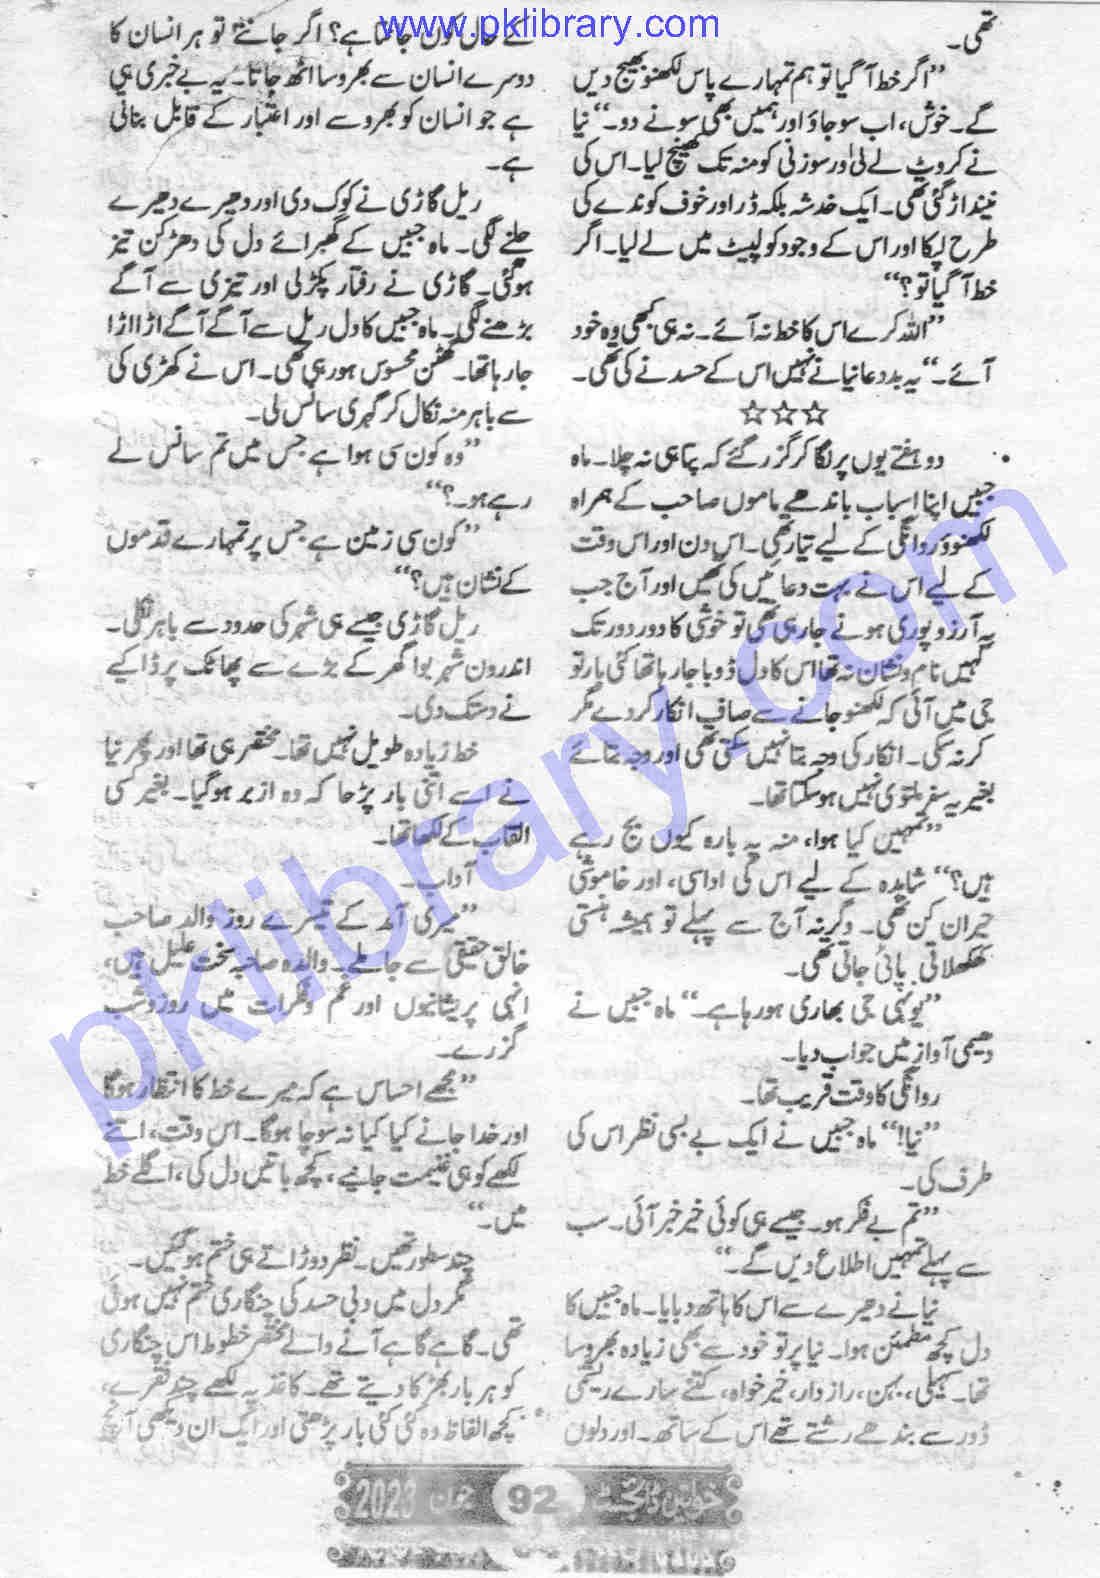 www.pklibrary.com
تھی۔
”اگر خط آ گیا تو ہم تمہارے پاس لکھنؤ بھیج دیں
گے۔ خوش، اب سو جاؤ اور ہمیں بھی سونے دو۔“ نیا
نے کروٹ لے لی اور سوزنی کو منہ تک کھینچ لیا۔ اس کی
نیند اڑ گئی تھی۔ ایک خدشہ بلکہ ڈر اور خوف کوندے کی
طرح لپکا اور اس کے وجود کو لپیٹ میں لے لیا۔ اگر
خط آ گیا تو؟“
”اللہ کرے اس کا خط نہ آئے۔ نہ ہی کبھی وہ خود
آئے۔“ یہ بددعا نیا نے نہیں اس کے حسد نے کی تھی۔
☆☆☆
دو ہفتے یوں پر لگا کر گزر گئے کہ پتا ہی نہ چلا۔ ماہ
جبیں اپنا اسباب باندھے ماموں صاحب کے ہمراہ
لکھنؤ روانگی کے لیے تیار تھی۔ اس دن اور اس وقت
کے لیے اس نے بہت دعائیں کی تھیں اور آج جب
یہ آرزو پوری ہونے جا رہی تھی تو خوشی کا دور دور تک
کہیں نام و نشان نہ تھا اس کا دل ڈوبا جا رہا تھا کئی بار تو
جی میں آئی کہ لکھنؤ جانے سے صاف انکار کر دے مگر
کر نہ سکی۔ انکار کی وجہ بتا نہیں سکتی تھی اور وجہ بتائے
بغیر یہ سفر ملتوی نہیں ہو سکتا تھا۔
”تمہیں کیا ہوا، منہ پہ بارہ کیوں بج رہے
ہیں؟“ شاہدہ کے لیے اس کی اداسی، اور خاموشی
حیران کن تھی۔ وگرنہ آج سے پہلے تو ہمیشہ ہنستی
کھکھلاتی پائی جاتی تھی۔
”یونہی جی بھاری ہو رہا ہے۔“ ماہ جبیں نے
دھیمی آواز میں جواب دیا۔
روانگی کا وقت قریب تھا۔
”نیا!“ ماہ جبیں نے ایک بے بسی نظر اس کی
طرف کی۔
”تم بے فکر ہو۔ جیسے ہی کوئی خیر خبر آئی۔ سب
سے پہلے تمہیں اطلاع دیں گے۔“
نیا نے دھیرے سے اس کا ہاتھ دبایا۔ ماہ جبیں کا
دل کچھ مطمئن ہوا۔ نیا پر تو خود سے بھی زیادہ بھروسا
تھا۔ سہیلی، بہن، رازدار، خیر خواہ، کتنے سارے ریشمی
ڈور سے بندھے رشتے تھے اس کے ساتھ۔ اور دلوں
کے حال کون جانتا ہے؟ اگر جانتے تو ہر انسان کا
دوسرے انسان سے بھروسا اٹھ جاتا۔ یہ بے خبری ہی
ہے جو انسان کو بھروسے اور اعتبار کے قابل بناتی
ہے۔
ریل گاڑی نے کوک دی اور دھیرے دھیرے
چلنے لگی۔ ماہ جبیں کے گھبرائے دل کی دھڑکن تیز
ہو گئی۔ گاڑی نے رفتار پکڑ لی اور تیزی سے آگے
بڑھنے لگی۔ ماہ جبیں کا دل ریل سے آگے آگے اڑا اڑا
جا رہا تھا۔ گھٹن محسوس ہو رہی تھی۔ اس نے کھڑکی
سے باہر منہ نکال کر گہری سانس لی۔
”وہ کون سی ہوا ہے جس میں تم سانس لے
رہے ہو۔؟“
”کون سی زمین ہے جس پر تمہارے قدموں
کے نشان ہیں؟“
ریل گاڑی جیسے ہی شہر کی حدود سے باہر نکلی۔
اندرون شہر بوا گھر کے بڑے سے پھاٹک پر ڈاکیے
نے دستک دی۔
خط زیادہ طویل نہیں تھا۔ مختصر ہی تھا اور پھر نیا
نے اسے اتنی بار پڑھا کہ وہ ازبر ہو گیا۔ بغیر کسی
القاب کے لکھا تھا۔
آداب۔
”میری آمد کے تیسرے روز والد صاحب
خالق حقیقی سے جا ملے۔ والدہ صاحبہ سخت علیل ہیں،
انہی پریشانیوں اور غم و فکرات میں روز و شب
گزرے۔
”مجھے احساس ہے کہ میرے خط کا انتظار ہو گا
اور خدا جانے کیا کیا نہ سوچا ہو گا۔ اس وقت، اتنے
لکھے کو ہی غنیمت جانیے، کچھ باتیں دل کی، اگلے خط
میں۔“
چند سطور تھیں۔ نظر دوڑاتے ہی ختم ہو گئیں۔
مگر دل میں دبی حسد کی چنگاری ختم نہیں ہوئی
تھی۔ گاہے گاہے آنے والے مختصر خطوط اس چنگاری
کو ہر بار بھڑکا دیتے تھے۔ کاغذ پہ لکھے چند فقرے،
کچھ الفاظ وہ کئی کئی بار پڑھتی اور ایک ان دیکھی آنچ
خواتین ڈائجسٹ 92 جون 2023
pklibrary.com